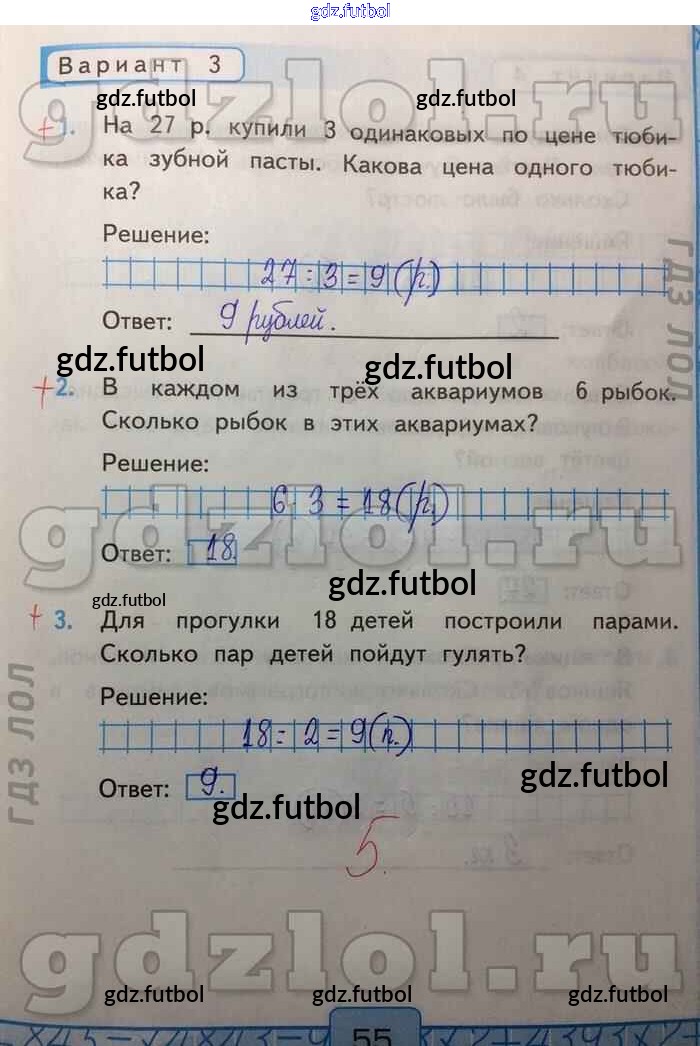 gdz.futbol
Вариант 3
gdz.futbol gdz.futbol
gdzlol.ru
+ 1. На 27 р. купили 3 одинаковых по цене тюби-
ка зубной пасты. Какова цена одного тюби-
ка?
Решение:
27 : 3 = 9 (р.)
Ответ: 9 рублей.
ГДЗ ЛОЛ
gdz.futbol gdz.futbol
+ 2. В каждом из трёх аквариумов 6 рыбок.
Сколько рыбок в этих аквариумах?
Решение:
6 3 = 18 (р.)
gdzlol.ru
Ответ: 18
gdz.futbol
gdz.futbol
+ 3. Для прогулки 18 детей построили парами.
Сколько пар детей пойдут гулять?
Решение:
18 : 2 = 9 (п.)
ГДЗ ЛОЛ
Ответ: 9.
gdz.futbol
gdz.futbol
5
gdzlol.ru
gdz.futbol gdz.futbol gdz.futbol
55